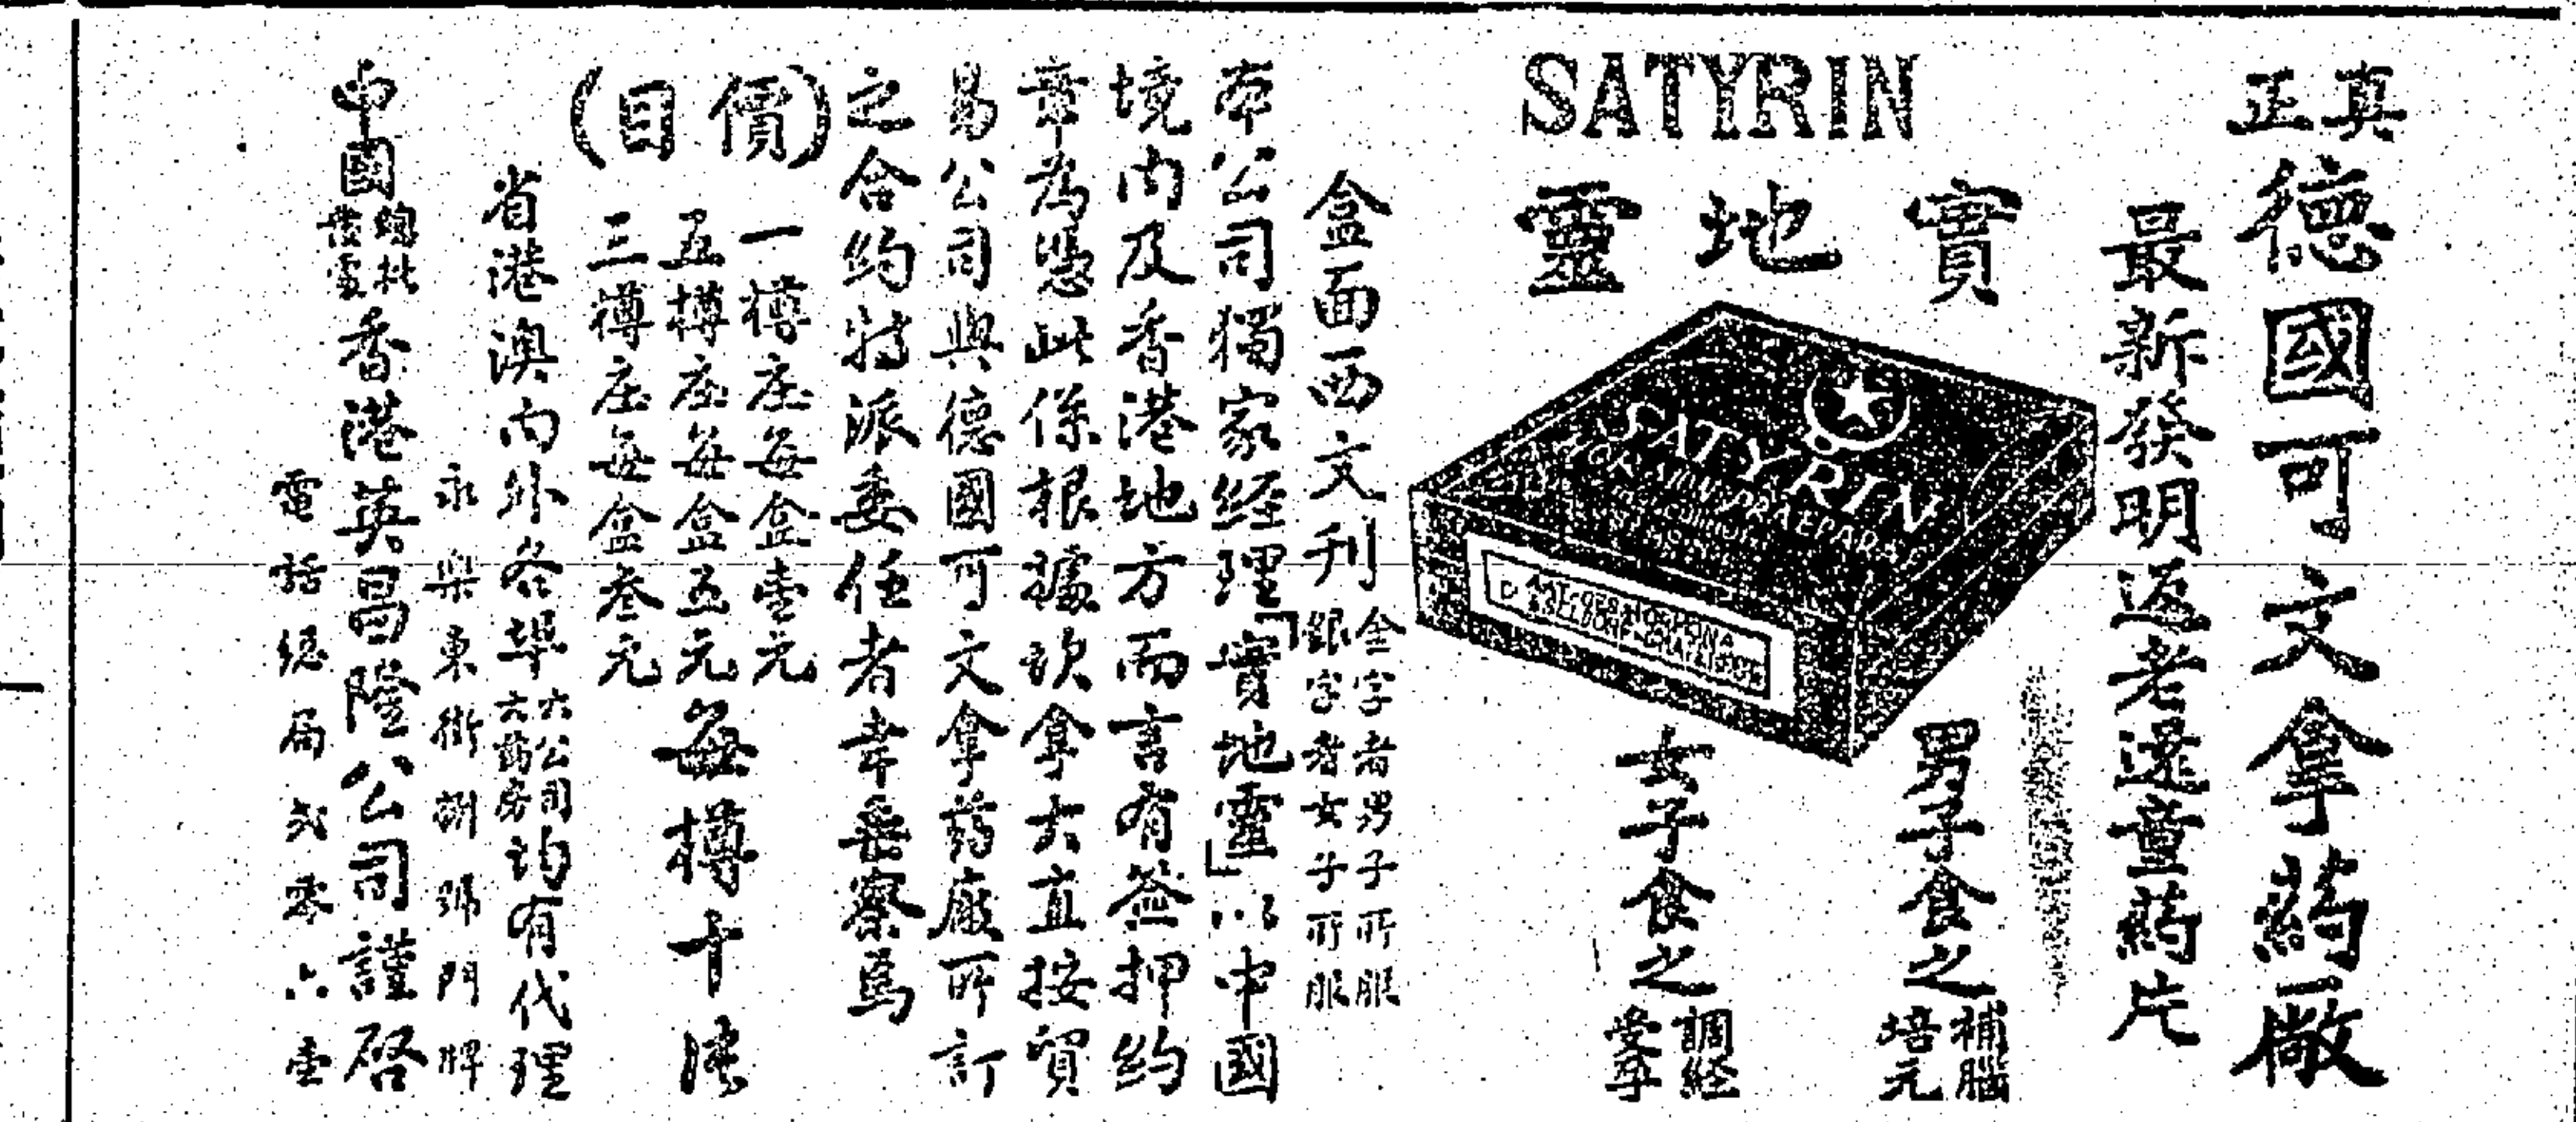 真正德國可文拿葯廠
最新發明返老還童葯片
SATYRIN
寶地靈
SATYRIN
男子食之補腦培元
女子食之調經受孕
盒面西文刊金字者男子所服銀字者女子所服
本公司獨家經理「寶地靈」以中國
境內及香港地方而言有簽押約
章為憑此係根據欧拿大直接貿
易公司與德國可文拿葯廠所訂
之合約特派委任者幸垂察焉
(價目)
一樽庄每盒壹元
五樽庄每盒五元
三樽庄每盒叁元
每樽十
省港澳內外各埠大公司大葯房均有代理
永樂東街捌號門牌
中國總批發處香港英昌隆公司謹啓
電話總局弍零六壹